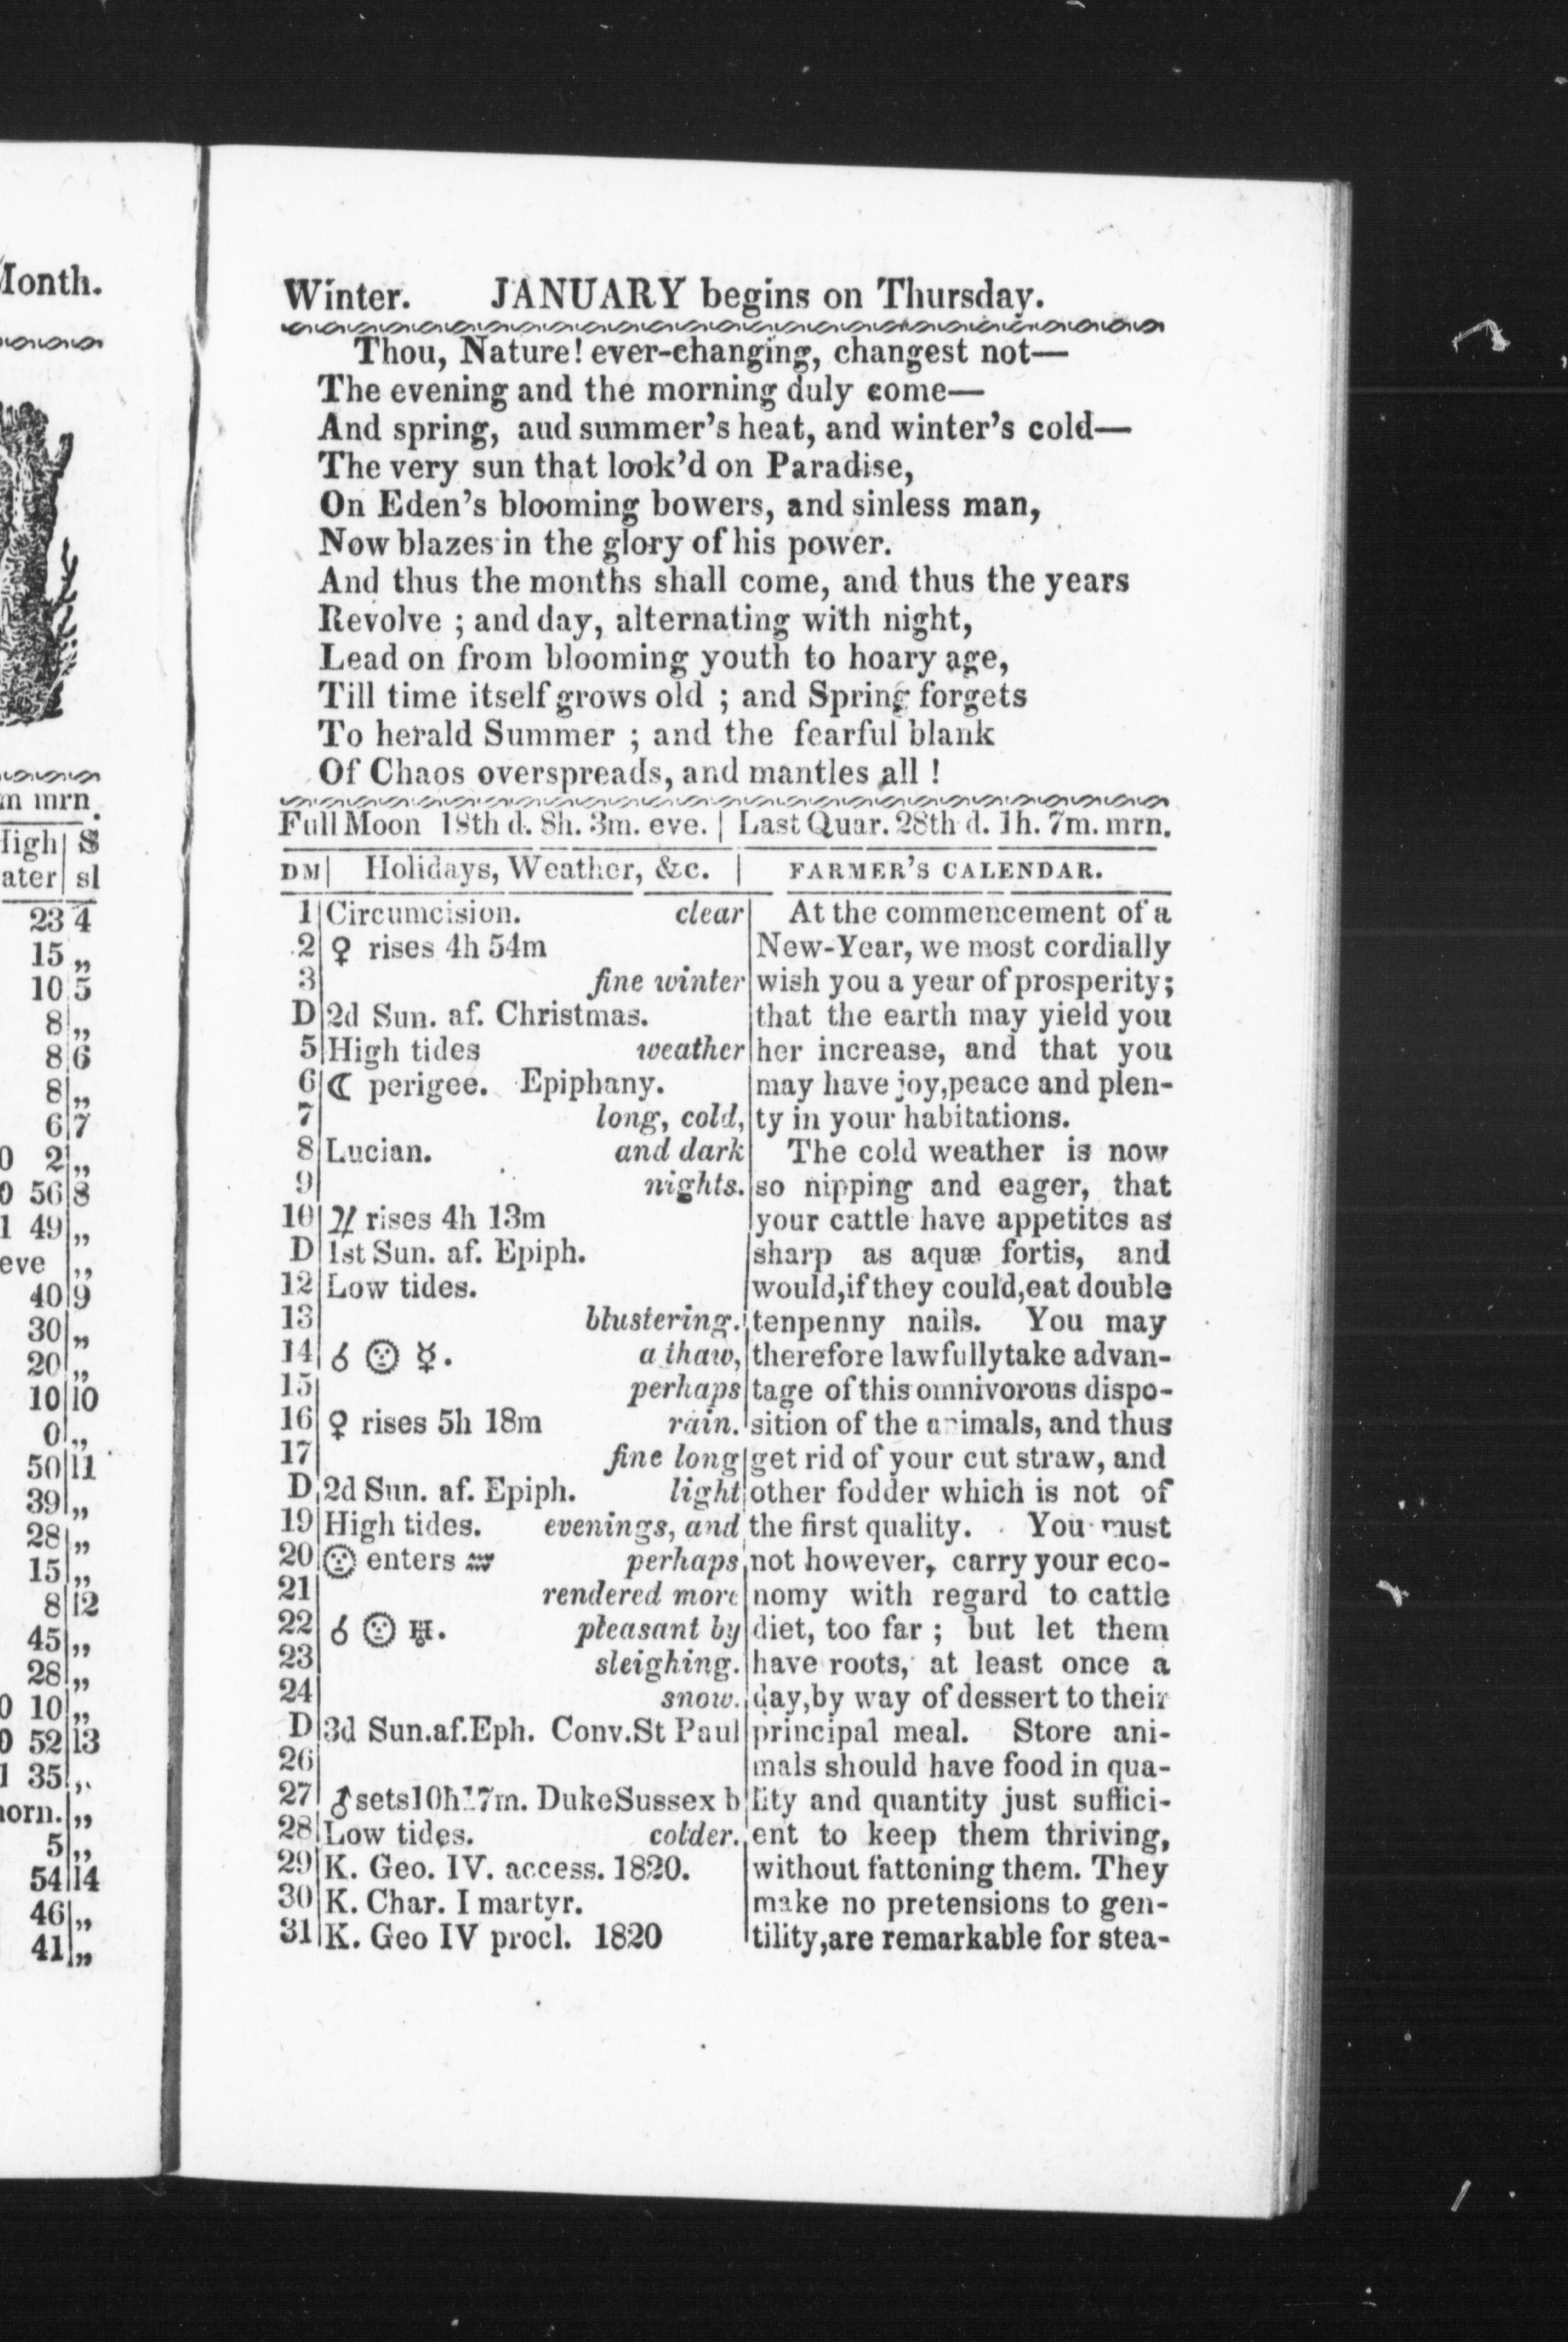 Month.
m mrn.
High| S
ater| sl
23 4
15 „
10 5
8 „
8 6
8 „
6 7
0 2 „
0 56 8
1 49 „
eve „
40 9
30 „
20 „
10 10
0 „
50 11
39 „
28 „
15 „
8 12
45 „
28 „
0 10 „
0 52 13
1 35 „
orn. „
5 „
54 14
46 „
41 „
Winter. JANUARY begins on Thursday.
Thou, Nature! ever-changing, changest not—
The evening and the morning duly come—
And spring, aud summer's heat, and winter's cold—
The very sun that look'd on Paradise,
On Eden's blooming bowers, and sinless man,
Now blazes in the glory of his power.
And thus the months shall come, and thus the years
Revolve ; and day, alternating with night,
Lead on from blooming youth to hoary age,
Till time itself grows old ; and Spring forgets
To herald Summer ; and the fearful blank
Of Chaos overspreads, and mantles all !
Full Moon 18th d. 8h. 3m. eve. | Last Quar. 28th d. 1h. 7m. mrn.
DM| Holidays, Weather, &c. | FARMER'S CALENDAR.
1 Circumcision. clear
2 ♀ rises 4h 54m
3 fine winter
D 2d Sun. af. Christmas.
5 High tides weather
6 ☾ perigee. Epiphany.
7 long, cold,
8 Lucian. and dark
9 nights.
10 ♃ rises 4h 13m
D 1st Sun. af. Epiph.
12 Low tides.
13 blustering.
14 ☌ ☉ ☿. a thaw,
15 perhaps
16 ♀ rises 5h 18m rain.
17 fine long
D 2d Sun. af. Epiph. light
19 High tides. evenings, and
20 ☉ enters ♒ perhaps
21 rendered more
22 ☌ ☉ ♅. pleasant by
23 sleighing.
24 snow.
D 3d Sun.af.Eph. Conv.St Paul
26
27 ♂ sets10h17m. DukeSussex b
28 Low tides. colder.
29 K. Geo. IV. access. 1820.
30 K. Char. I martyr.
31 K. Geo IV procl. 1820
At the commencement of a
New-Year, we most cordially
wish you a year of prosperity;
that the earth may yield you
her increase, and that you
may have joy,peace and plen-
ty in your habitations.
The cold weather is now
so nipping and eager, that
your cattle have appetites as
sharp as aquæ fortis, and
would,if they could,eat double
tenpenny nails. You may
therefore lawfullytake advan-
tage of this omnivorous dispo-
sition of the animals, and thus
get rid of your cut straw, and
other fodder which is not of
the first quality. You must
not however, carry your eco-
nomy with regard to cattle
diet, too far ; but let them
have roots, at least once a
day,by way of dessert to their
principal meal. Store ani-
mals should have food in qua-
lity and quantity just suffici-
ent to keep them thriving,
without fattening them. They
make no pretensions to gen-
tility,are remarkable for stea-